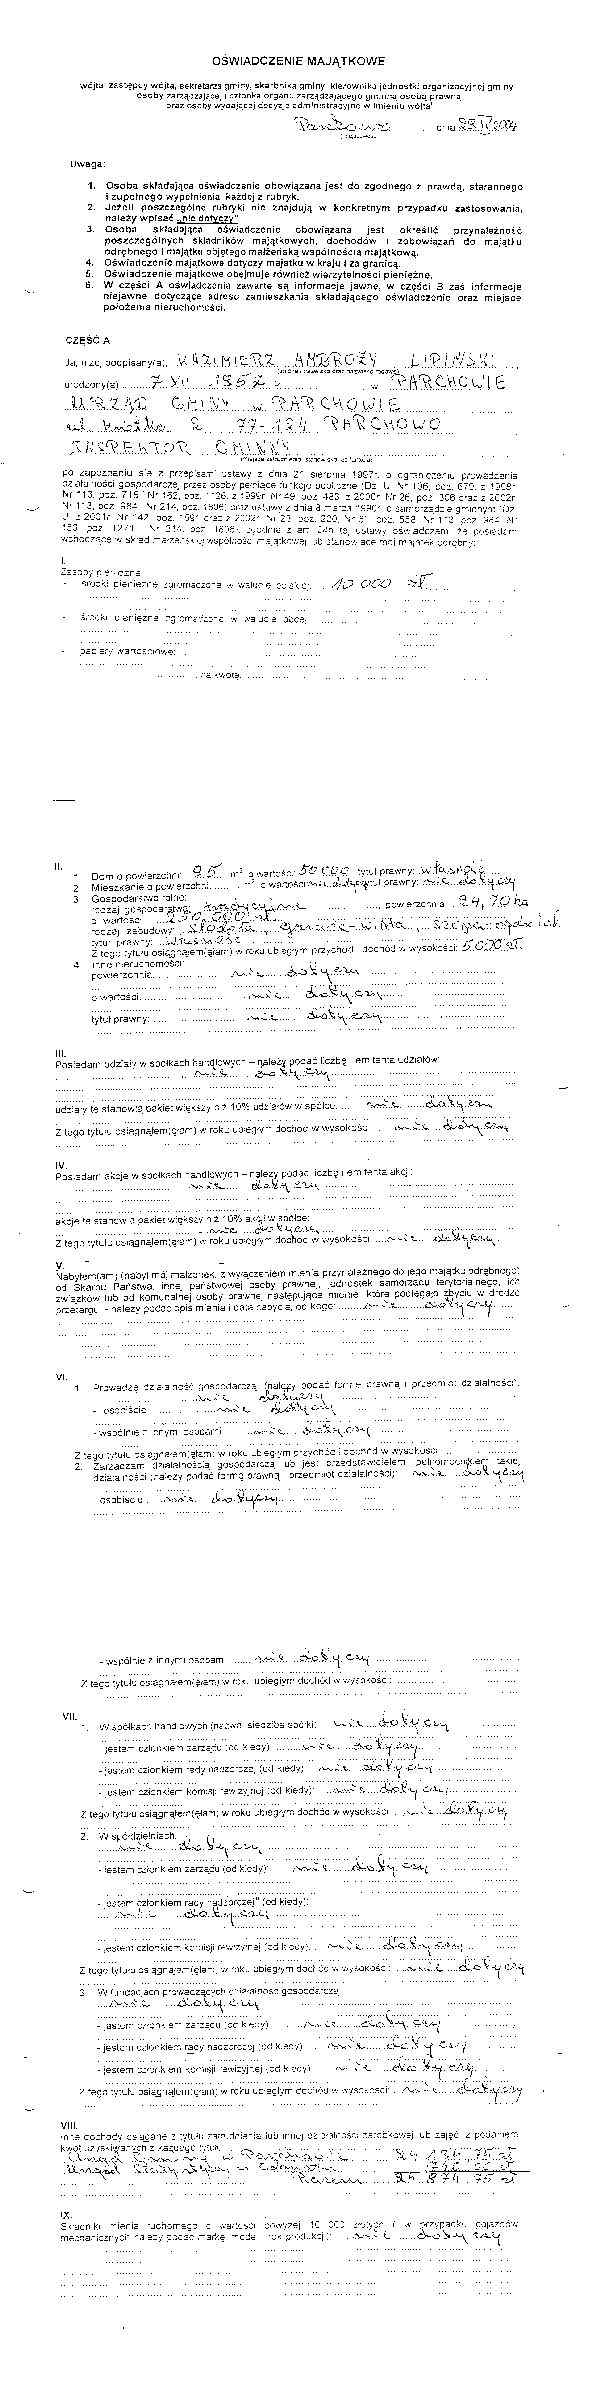 OŚWIADCZENIE MAJĄTKOWE
wójta, zastępcy wójta, sekretarza gminy, skarbnika gminy, kierownika jednostki organizacyjnej gminy
osoby zarządzającej i członka organu zarządzającego gminną osobą prawną
oraz osoby wydającej decyzje administracyjne w imieniu wójta
Uwaga:
1. Osoba składająca oświadczenie obowiązana jest do zgodnego z prawdą, starannego
i zupełnego wypełnienia każdej z rubryk.
2. Jeżeli poszczególne rubryki nie znajdują w konkretnym przypadku zastosowania,
należy wpisać „nie dotyczy”
3. Osoba składająca oświadczenie obowiązana jest określić przynależność
poszczególnych składników majątkowych, dochodów i zobowiązań do majątku
odrębnego i majątku objętego małżeńską wspólnością majątkową.
4. Oświadczenie majątkowe dotyczy majątku w kraju i za granicą.
5. Oświadczenie majątkowe obejmuje również wierzytelności pieniężne.
6. W części A oświadczenia zawarte są informacje jawne, w części B zaś informacje
niejawne dotyczące adresu zamieszkania składającego oświadczenie oraz miejsce
położenia nieruchomości.
CZĘŚĆ A
Ja, niżej podpisany(a), KAZIMIERZ AMBROŻY LIPIŃSKI
urodzony(a) w PARCHOWIE
URZĄD GMINY w PARCHOWIE
77-124 PARCHOWO
INSPEKTOR GMINNY
po zapoznaniu się z przepisami ustawy z dnia 21 sierpnia 1997r. o ograniczeniu prowadzenia
działalności gospodarczej przez osoby pełniące funkcje publiczne
wchodzące w skład małżeńskiej wspólności majątkowej lub stanowiące mój majątek odrębny:
I.
Zasoby pieniężne:
- środki pieniężne zgromadzone w walucie polskiej: 10 000 zł
- środki pieniężne zgromadzone w walucie obcej:
- papiery wartościowe:
na kwotę:
II.
1. Dom o powierzchni: 95 m² o wartości: 50 000 tytuł prawny: własność
2. Mieszkanie o powierzchni: m² o wartości: nie dotyczy tytuł prawny: nie dotyczy
3. Gospodarstwo rolne:
rodzaj gospodarstwa: tradycyjne, powierzchnia: 24,70 ha
o wartości:
rodzaj zabudowy: stodoła,
tytuł prawny: własność
Z tego tytułu osiągnąłem(ęłam) w roku ubiegłym przychód i dochód w wysokości: 5.000 zł
4. Inne nieruchomości:
powierzchnia: nie dotyczy
o wartości: nie dotyczy
tytuł prawny: nie dotyczy
III.
Posiadam udziały w spółkach handlowych – należy podać liczbę i emitenta udziałów:
nie dotyczy
udziały te stanowią pakiet większy niż 10% udziałów w spółce: nie dotyczy
Z tego tytułu osiągnąłem(ęłam) w roku ubiegłym dochód w wysokości: nie dotyczy
IV.
Posiadam akcje w spółkach handlowych – należy podać liczbę i emitenta akcji:
nie dotyczy
akcje te stanowią pakiet większy niż 10% akcji w spółce:
nie dotyczy
Z tego tytułu osiągnąłem(ęłam) w roku ubiegłym dochód w wysokości: nie dotyczy
V.
Nabyłem(am) (nabył mój małżonek, z wyłączeniem mienia przynależnego do jego majątku odrębnego)
od Skarbu Państwa, innej państwowej osoby prawnej, jednostek samorządu terytorialnego, ich
związków lub od komunalnej osoby prawnej następujące mienie, które podlegało zbyciu w drodze
przetargu - należy podać opis mienia i datę nabycia, od kogo: nie dotyczy
VI.
1. Prowadzę działalność gospodarczą (należy podać formę prawną i przedmiot działalności):
nie dotyczy
- osobiście nie dotyczy
- wspólnie z innymi osobami nie dotyczy
Z tego tytułu osiągnąłem(ęłam) w roku ubiegłym przychód i dochód w wysokości:
2. Zarządzam działalnością gospodarczą lub jest przedstawicielem, pełnomocnikiem takiej
działalności (należy podać formę prawną i przedmiot działalności): nie dotyczy
- osobiście nie dotyczy
- wspólnie z innymi osobami nie dotyczy
Z tego tytułu osiągnąłem(ęłam) w roku ubiegłym dochód w wysokości:
VII.
1. W spółkach handlowych (nazwa, siedziba spółki): nie dotyczy
- jestem członkiem zarządu (od kiedy): nie dotyczy
- jestem członkiem rady nadzorczej (od kiedy): nie dotyczy
- jestem członkiem komisji rewizyjnej (od kiedy): nie dotyczy
Z tego tytułu osiągnąłem(ęłam) w roku ubiegłym dochód w wysokości: nie dotyczy
2. W spółdzielniach:
nie dotyczy
- jestem członkiem zarządu (od kiedy): nie dotyczy
- jestem członkiem rady nadzorczej (od kiedy):
nie dotyczy
- jestem członkiem komisji rewizyjnej (od kiedy): nie dotyczy
Z tego tytułu osiągnąłem(ęłam) w roku ubiegłym dochód w wysokości: nie dotyczy
3. W fundacjach prowadzących działalność gospodarczą:
nie dotyczy
- jestem członkiem zarządu (od kiedy): nie dotyczy
- jestem członkiem rady nadzorczej (od kiedy): nie dotyczy
- jestem członkiem komisji rewizyjnej (od kiedy): nie dotyczy
Z tego tytułu osiągnąłem(ęłam) w roku ubiegłym dochód w wysokości: nie dotyczy
VIII.
Inne dochody osiągane z tytułu zatrudnienia lub innej działalności zarobkowej lub zajęć, z podaniem
kwot uzyskiwanych z każdego tytułu:
Urząd Gminy w Parchowie
Razem
IX.
Składniki mienia ruchomego o wartości powyżej 10 000 złotych (w przypadku pojazdów
mechanicznych należy podać markę, model i rok produkcji): nie dotyczy